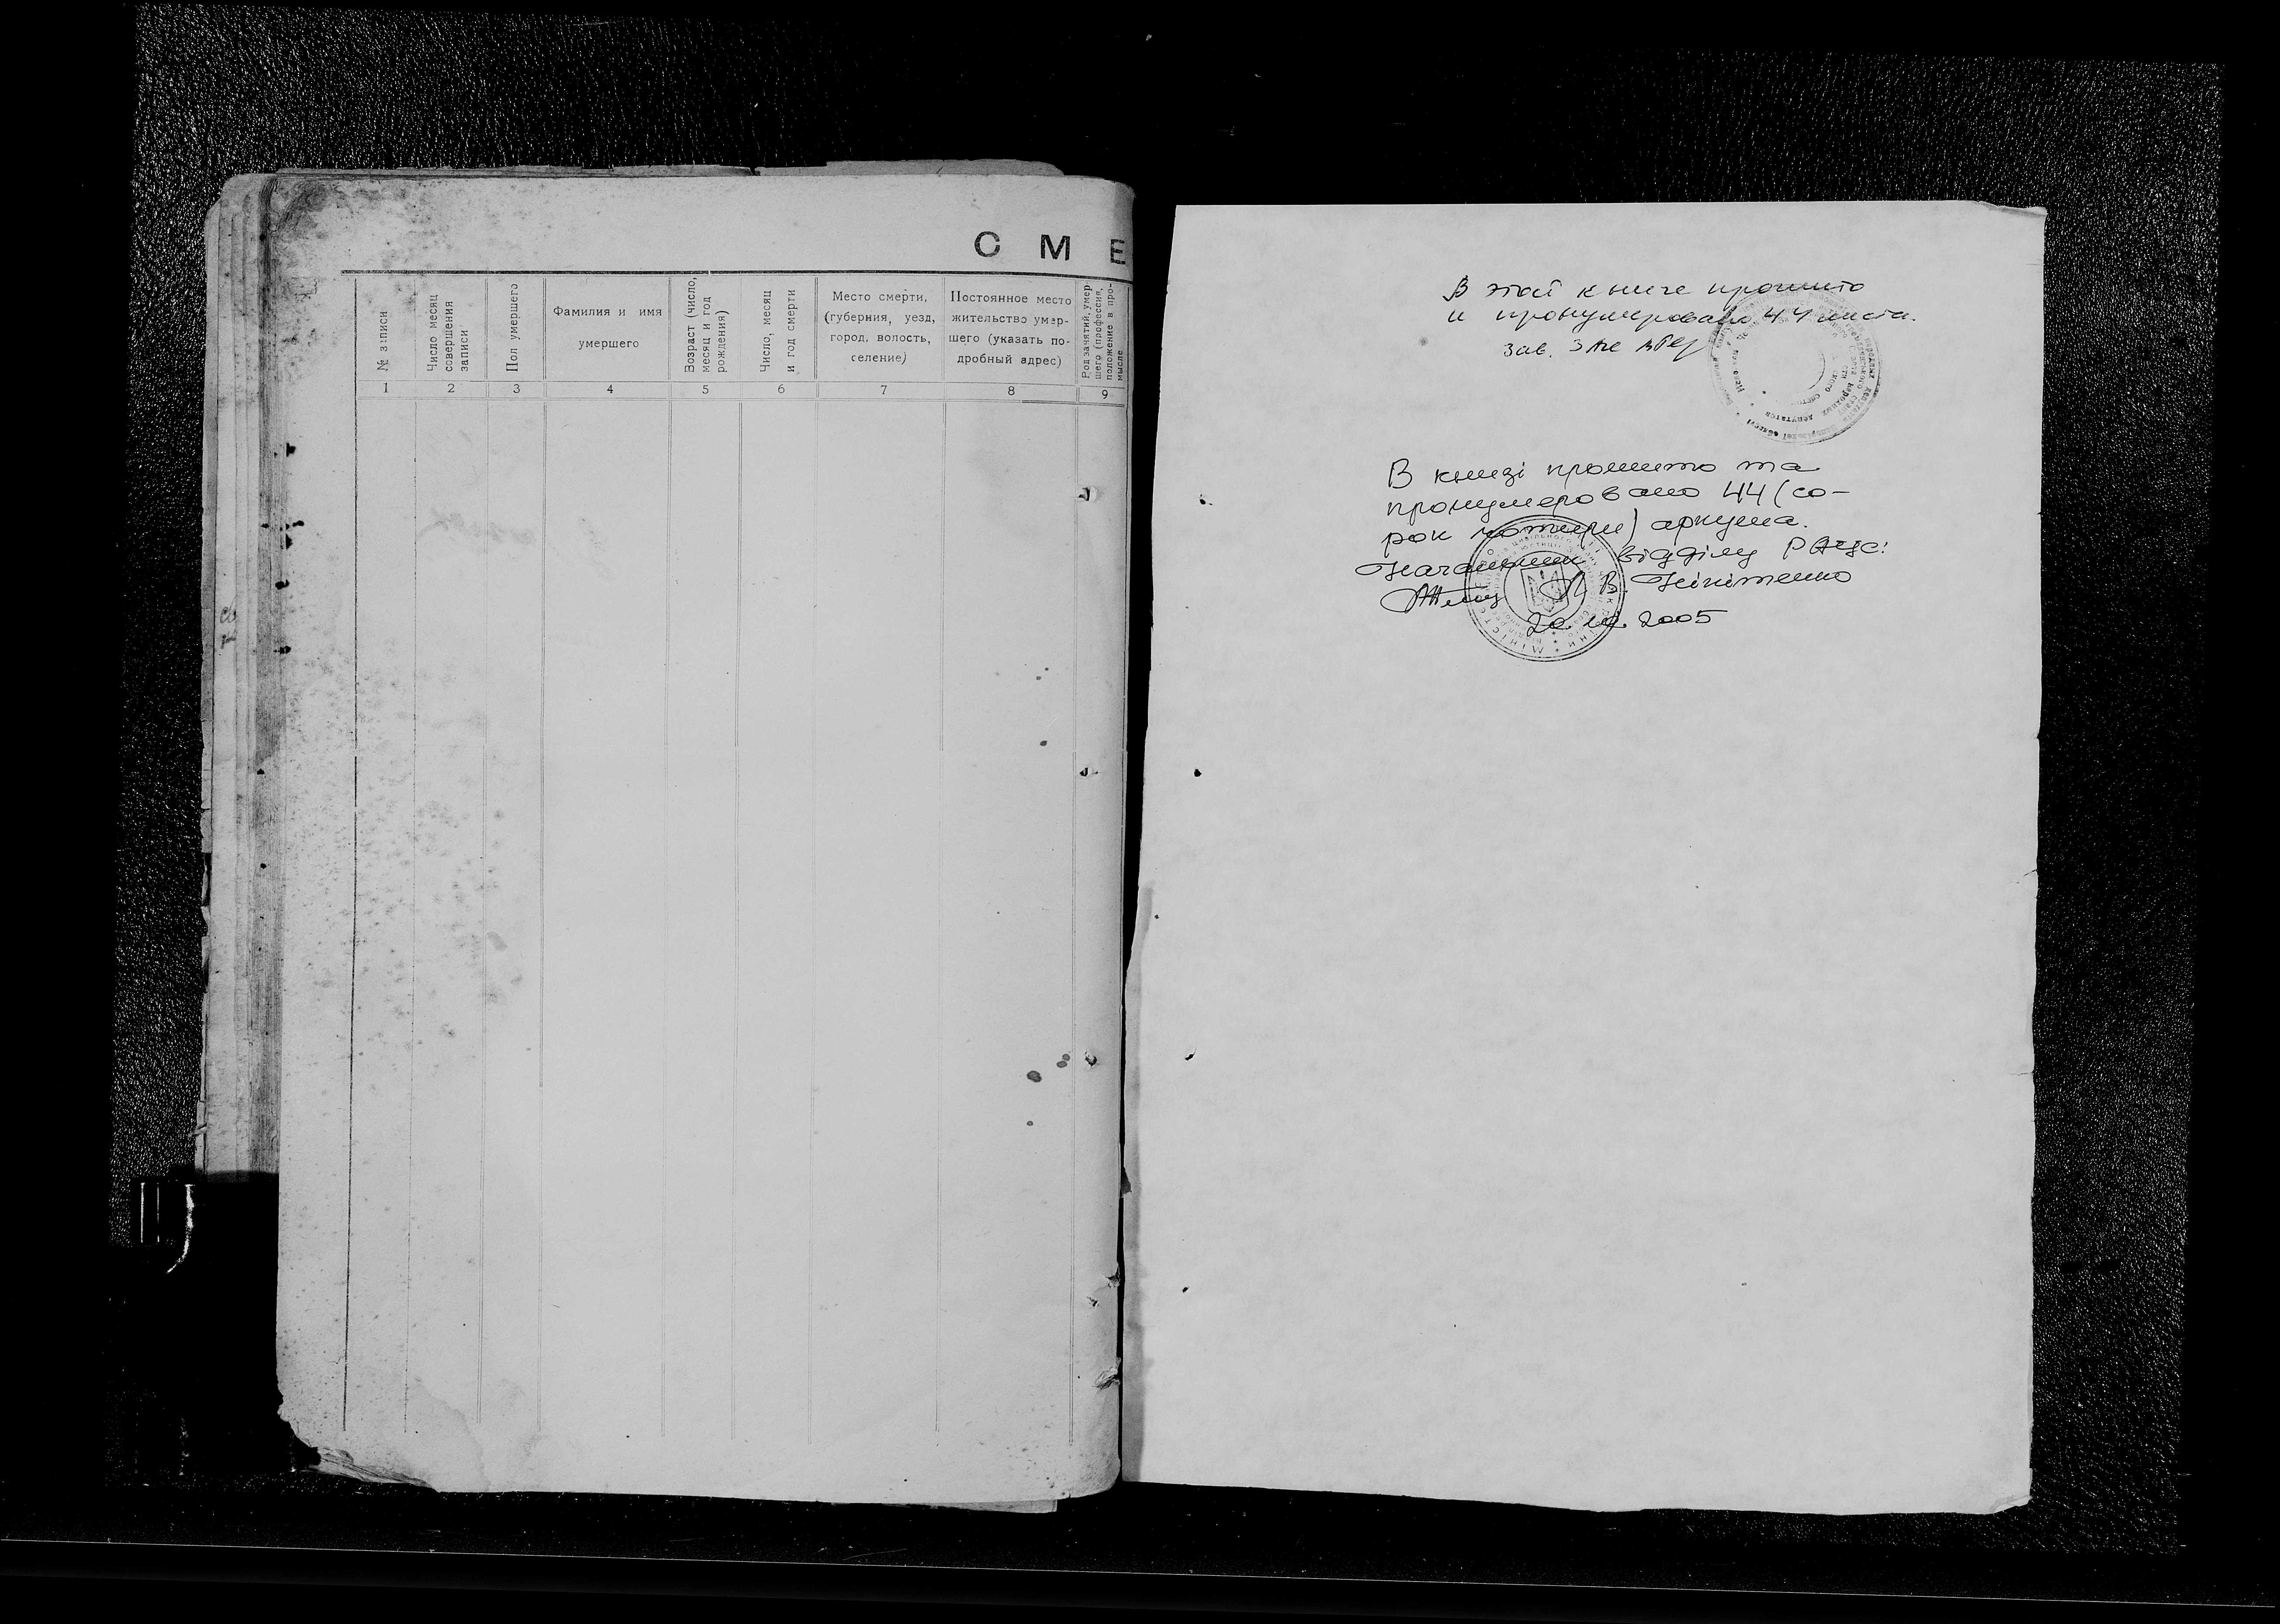 С М Е
№ записи
Число месяц
совершения
записи
Пол умершего
Фамилия и имя
умершего
Возраст (число,
месяц и год
рождения)
Число, месяц
и год смерти
Место смерти,
(губерния, уезд,
город, волость,
селение)
Постоянное место
жительство умер-
шего (указать по-
дробный адрес)
Род занятий, умер
шего (профессия,
положение в про-
мысле
1 2 3 4 5 6 7 8 9
В этой книге прошито
и пронумеровано 44 листа.
Зав.
В книзі прошито та
пронумеровано 44 (со-
рок чотири) аркуша.
Начальник відділу РАЦС:
В. Нікітенко
2005